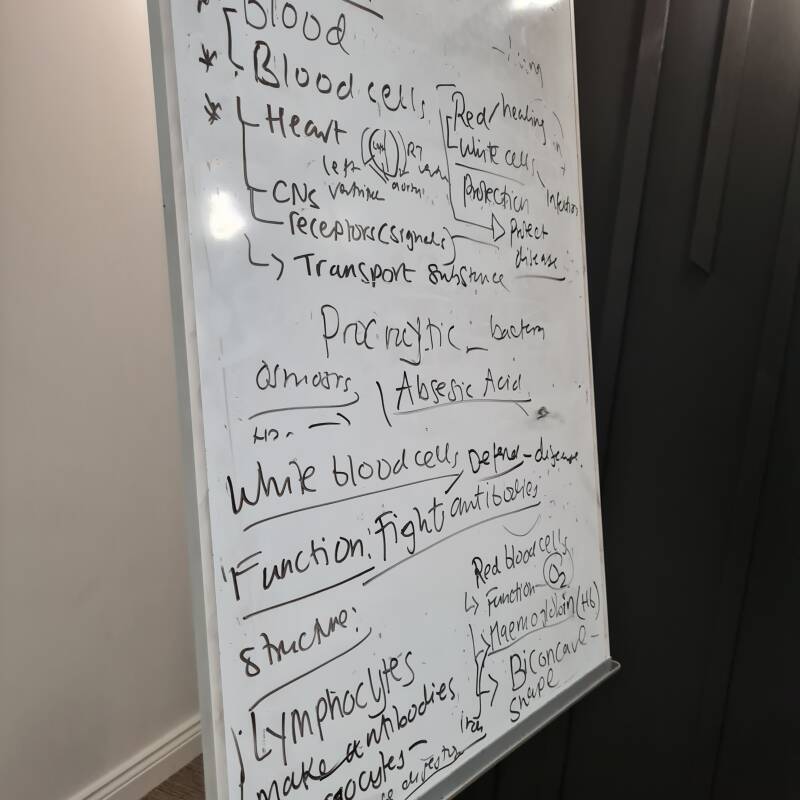 Blood
Blood cells
Heart
left
ventricle
CNS
receptors (signals)
Transport substance
Red/healing
White cells
Infection
Protection
Protect
disease
bacteria
Osmosis
Absesic Acid
White blood cells
Defend - disease.
Function: Fight antibodies
Structure:
Lymphocytes
make antibodies
Red blood cells
Function - O2
Haemogloloin (Hb)
Biconcave -
shape
iron